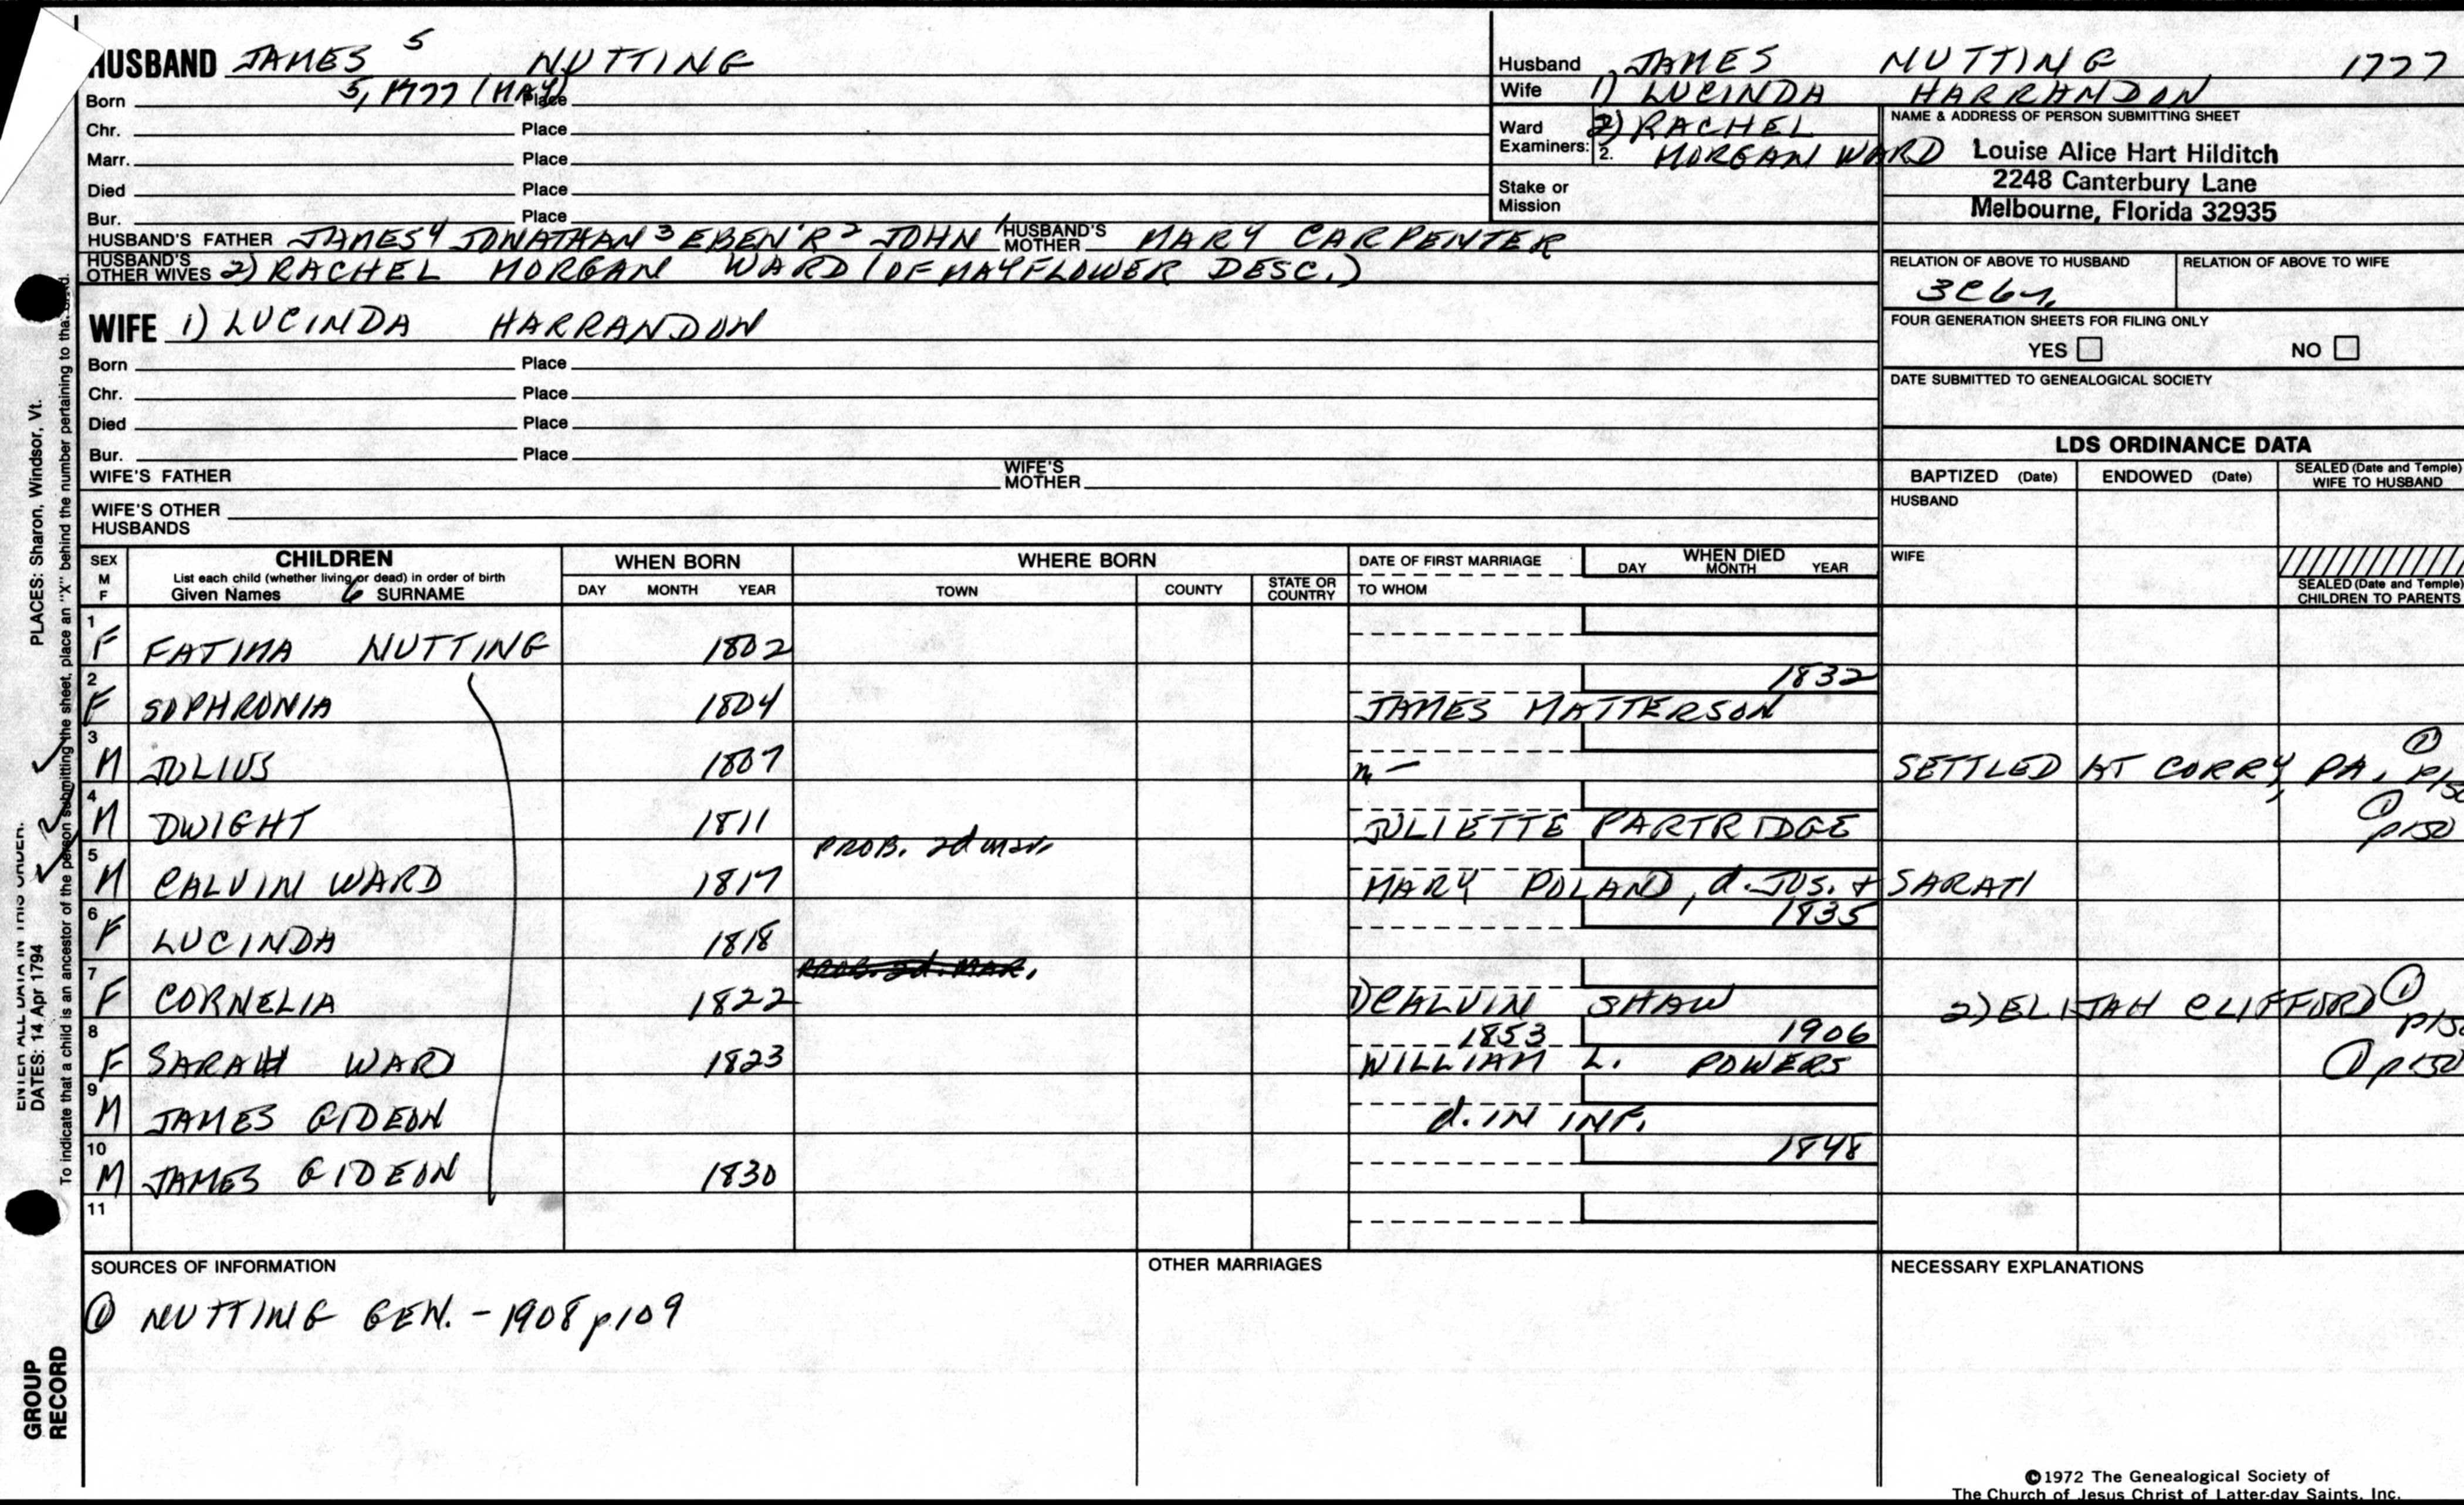 HUSBAND JAMES 5 NUTTING
Born 5, 1777 (MAY) Place
Chr. Place
Marr. Place
Died Place
Bur. Place
HUSBAND'S FATHER JAMES 4 JONATHAN 3 EBEN'R 2 JOHN 1 HUSBAND'S MOTHER MARY CARPENTER
HUSBAND'S OTHER WIVES 2) RACHEL MORGAN WARD (OF MAYFLOWER DESC.)
WIFE 1) LUCINDA HARRANDON
Born Place
Chr. Place
Died Place
Bur. Place
WIFE'S FATHER WIFE'S MOTHER
WIFE'S OTHER HUSBANDS
Husband JAMES NUTTING 1777
Wife 1) LUCINDA HARRANDON
Ward 2) RACHEL
Examiners: 2. MORGAN WARD
Stake or Mission
NAME & ADDRESS OF PERSON SUBMITTING SHEET
Louise Alice Hart Hilditch
2248 Canterbury Lane
Melbourne, Florida 32935
RELATION OF ABOVE TO HUSBAND RELATION OF ABOVE TO WIFE
FOUR GENERATION SHEETS FOR FILING ONLY
YES NO
DATE SUBMITTED TO GENEALOGICAL SOCIETY
LDS ORDINANCE DATA
BAPTIZED (Date) ENDOWED (Date) SEALED (Date and Temple) WIFE TO HUSBAND
HUSBAND
WIFE
SEALED (Date and Temple) CHILDREN TO PARENTS
SEX M F CHILDREN WHEN BORN WHERE BORN DATE OF FIRST MARRIAGE WHEN DIED
List each child (whether living or dead) in order of birth
Given Names 6 SURNAME DAY MONTH YEAR TOWN COUNTY STATE OR COUNTRY TO WHOM DAY MONTH YEAR
1 F FATIMA NUTTING 1802
2 F SOPHRONIA 1804 1832 JAMES MATTERSON
3 M JULIUS 1807 SETTLED AT CORRY, PA.
4 M DWIGHT 1811 JULIETTE PARTRIDGE 1 p150
PROB. 2d mar.
5 M CALVIN WARD 1817 MARY POLAND, d. JOS. + SARAH
6 F LUCINDA 1818 1835
PROB. 2d. MAR.
7 F CORNELIA 1822 1) CALVIN SHAW 2) ELIJAH CLIFFORD 1
8 F SARAH WARD 1823 1853 1906 WILLIAM L. POWERS 1 p150
9 M JAMES GIDEON d. IN INF.
10 M JAMES GIDEON 1830 1848
11
SOURCES OF INFORMATION OTHER MARRIAGES NECESSARY EXPLANATIONS
1 NUTTING GEN. - 1908 p109
©1972 The Genealogical Society of
The Church of Jesus Christ of Latter-day Saints, Inc.
PLACES: Sharon, Windsor, Vt.
DATES: 14 Apr 1794
To indicate that a child is an ancestor of the person submitting the sheet, place an "X" behind the number pertaining to that child.
GROUP RECORD